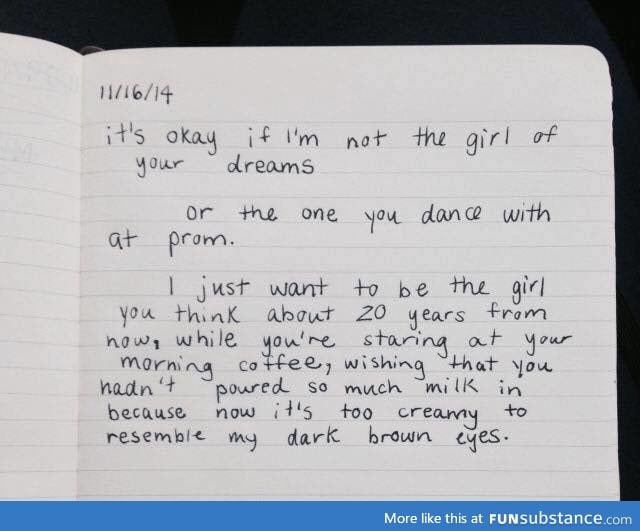 11/16/14
it's okay if I'm not the girl of
your dreams
or the one you dance with
at prom.
I just want to be the girl
you think about 20 years from
now, while you're staring at your
morning coffee, wishing that you
hadn't poured so much milk in
because now it's too creamy to
resemble my dark brown eyes.
More like this at FUNsubstance.com